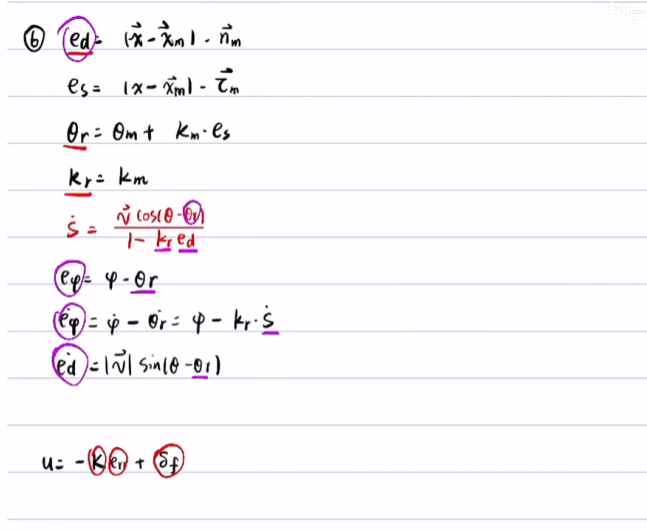 ⑥ ed = |x⃗ - x⃗m| · n⃗m
es = |x - x⃗m| - τ⃗m
θr = θm + km · es
kr = km
ṡ = v⃗ cos(θ - θr) / 1 - kr ed
eφ = φ - θr
ėφ = φ̇ - θ̇r = φ - kr · ṡ
ėd = |v⃗| sin(θ - θr)
u = -K err + δf